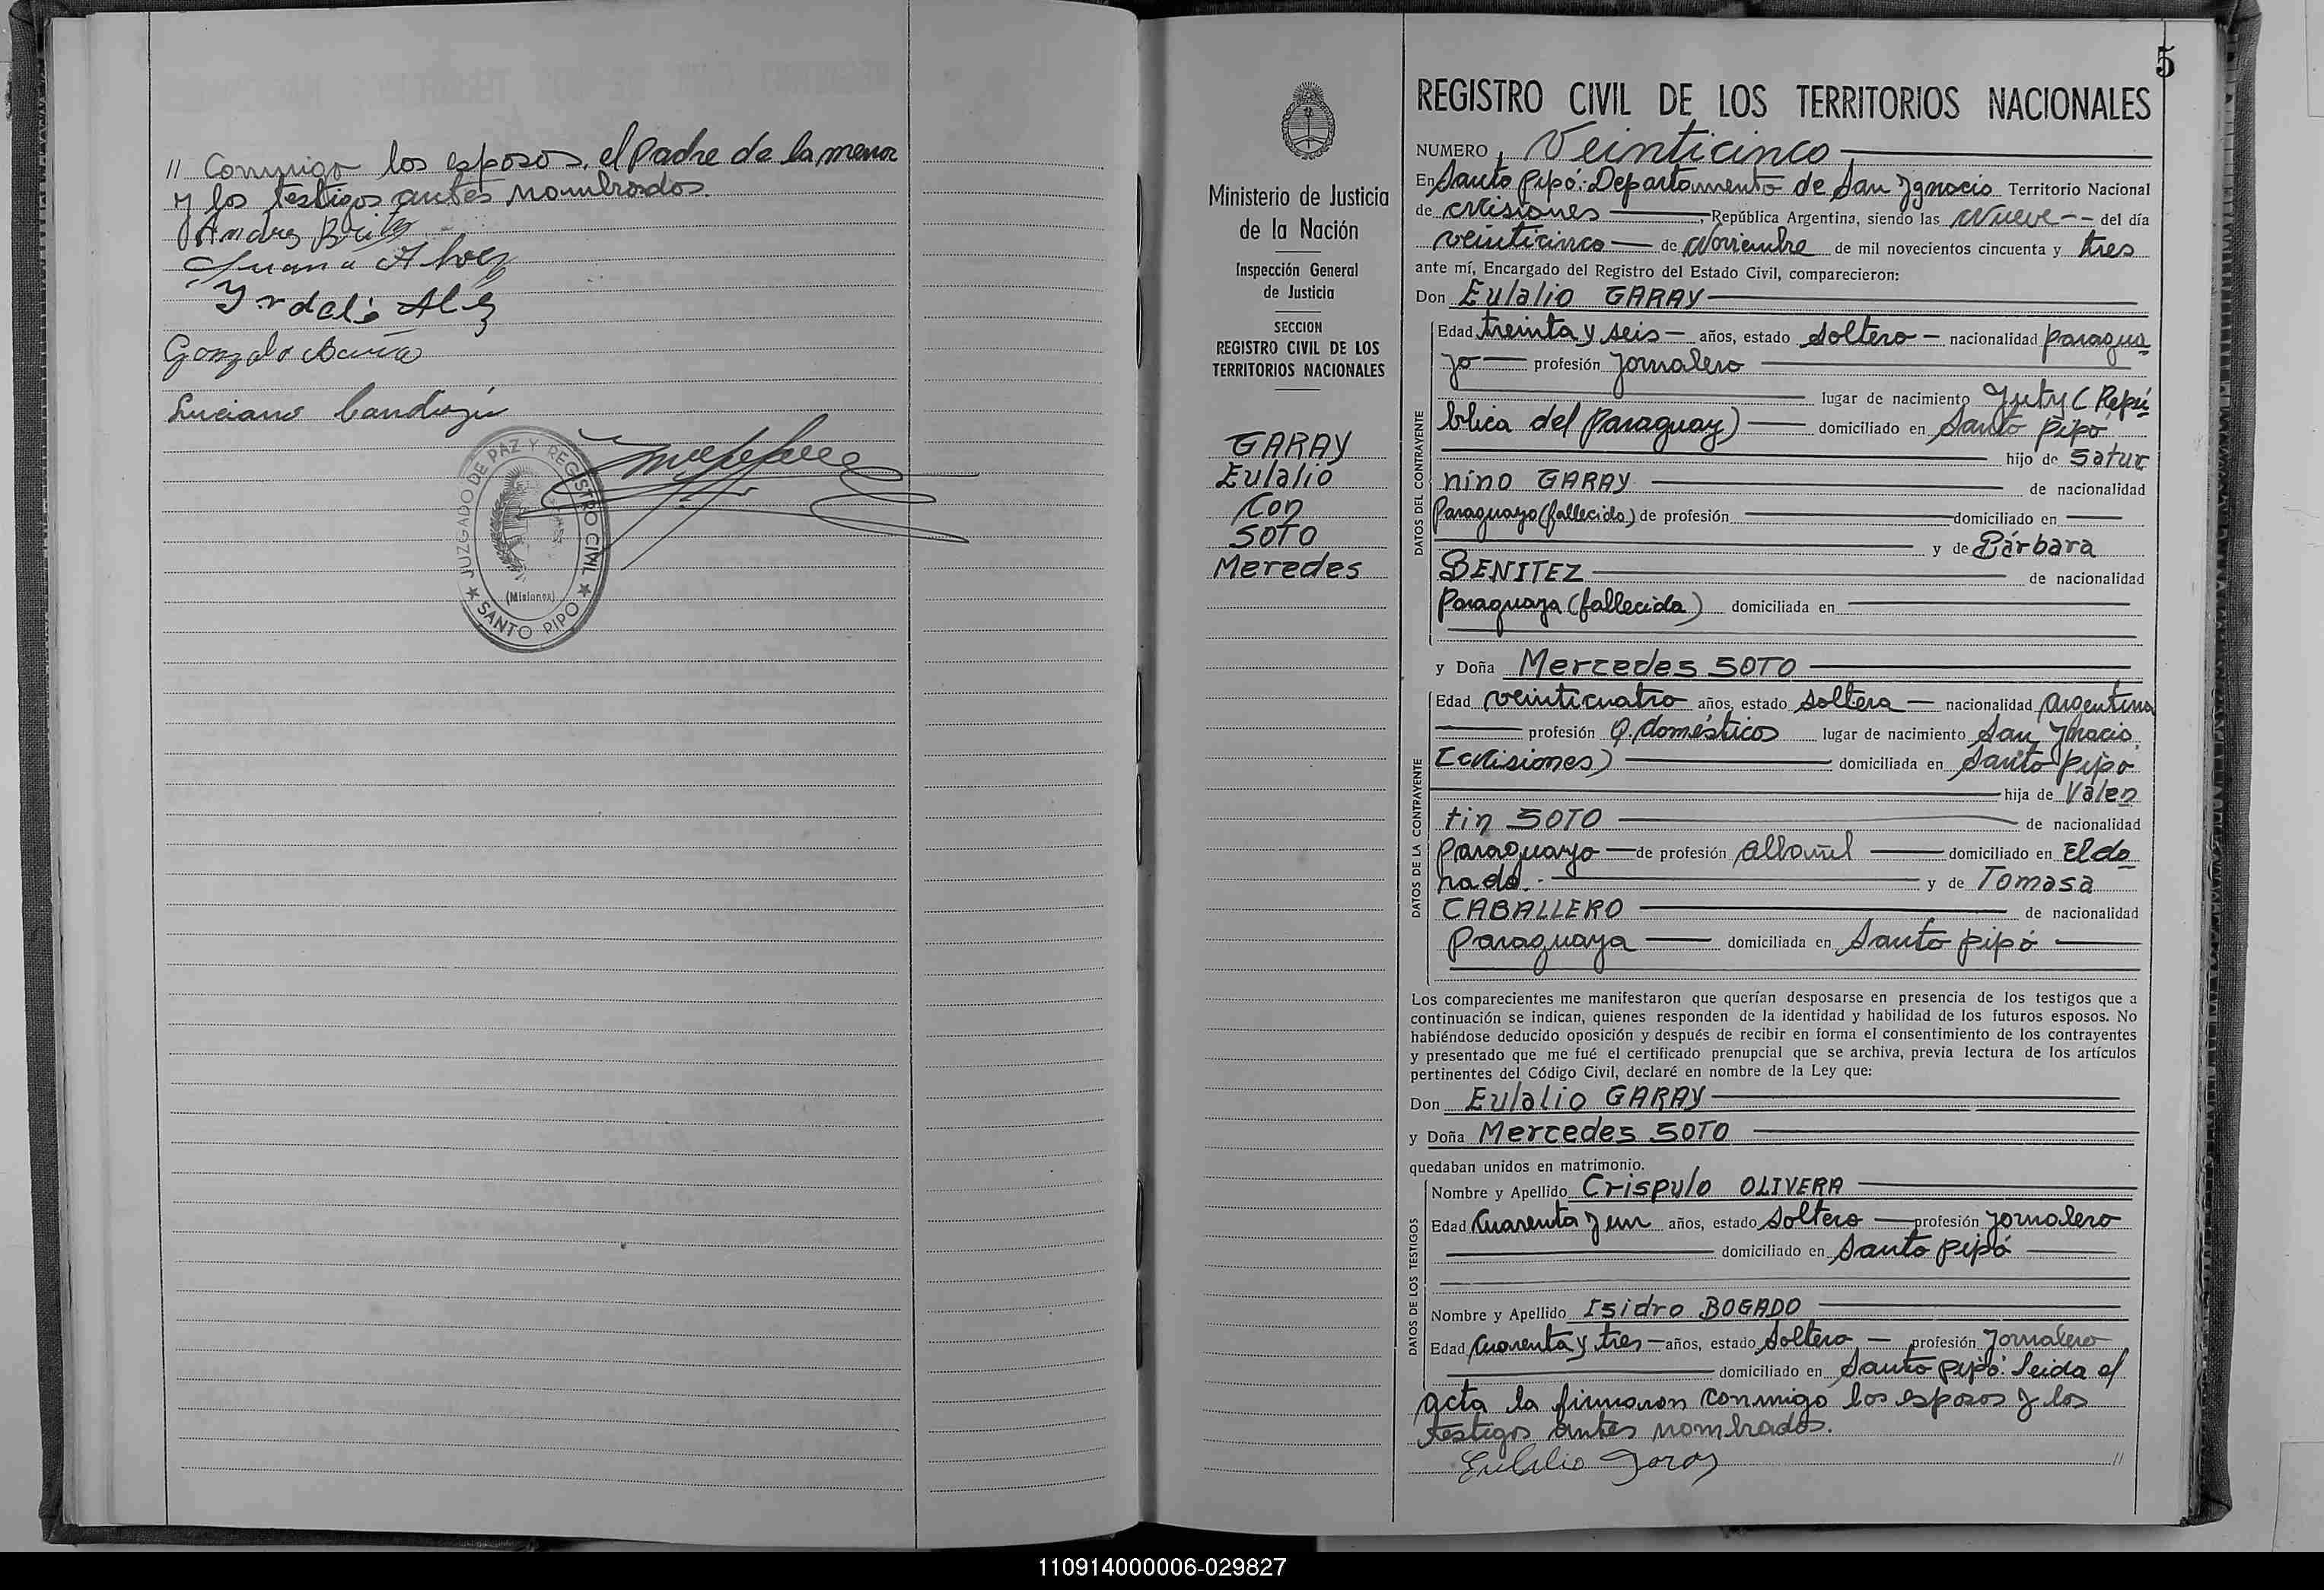 // Conmigo los esposos, el padre de la menor
y los testigos antes nombrados.
Andres
Juana
Gonzalo
Luciano
JUZGADO DE PAZ Y REGISTRO CIVIL
(Misiones)
★ SANTO PIPO ★
5
Ministerio de Justicia
de la Nación
Inspección General
de Justicia
SECCION
REGISTRO CIVIL DE LOS
TERRITORIOS NACIONALES
GARAY
Eulalio
Con
SOTO
Mercedes
REGISTRO CIVIL DE LOS TERRITORIOS NACIONALES
NUMERO Veinticinco
En Santo Pipó: Departamento de San Ygnacio Territorio Nacional
de Misiones, República Argentina, siendo las Nueve -- del día
veinticinco de Noviembre de mil novecientos cincuenta y tres
ante mí, Encargado del Registro del Estado Civil, comparecieron:
Don Eulalio GARAY
DATOS DEL CONTRAYENTE
Edad treinta y seis años, estado soltero nacionalidad paragua
yo profesión Jornalero
lugar de nacimiento Yuty (Repú
blica del Paraguay) domiciliado en Santo Pipó
hijo de Satur
nino GARAY de nacionalidad
Paraguayo (fallecido) de profesión domiciliado en
y de Bárbara
BENITEZ de nacionalidad
Paraguaya (fallecida) domiciliada en
y Doña Mercedes SOTO
DATOS DE LA CONTRAYENTE
Edad veinticuatro años, estado soltera nacionalidad Argentina
profesión Q. domésticos lugar de nacimiento San Ignacio
(Misiones) domiciliada en Santo Pipó
hija de Valen
tin SOTO de nacionalidad
Paraguayo de profesión albañil domiciliado en Eldo
rado. y de Tomasa
CABALLERO de nacionalidad
Paraguaya domiciliada en Santo Pipó
Los comparecientes me manifestaron que querían desposarse en presencia de los testigos que a
continuación se indican, quienes responden de la identidad y habilidad de los futuros esposos. No
habiéndose deducido oposición y después de recibir en forma el consentimiento de los contrayentes
y presentado que me fué el certificado prenupcial que se archiva, previa lectura de los artículos
pertinentes del Código Civil, declaré en nombre de la Ley que:
Don Eulalio GARAY
y Doña Mercedes SOTO
quedaban unidos en matrimonio.
DATOS DE LOS TESTIGOS
Nombre y Apellido Crispulo OLIVERA
Edad Cuarenta y un años, estado Soltero profesión Jornalero
domiciliado en Santo Pipó
Nombre y Apellido Isidro BOGADO
Edad Cuarenta y tres años, estado Soltero profesión Jornalero
domiciliado en Santo Pipó: Leida el
acta la firmaron conmigo los esposos y los
testigos antes nombrados.
Eulalio Garay
//
110914000006-029827